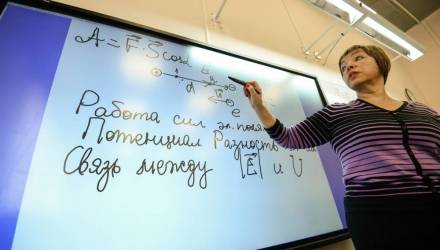 A = F⃗ · S cosα
d
e
Работа сил эл. поля
Потенциал Разность
Связь между |E⃗| и U